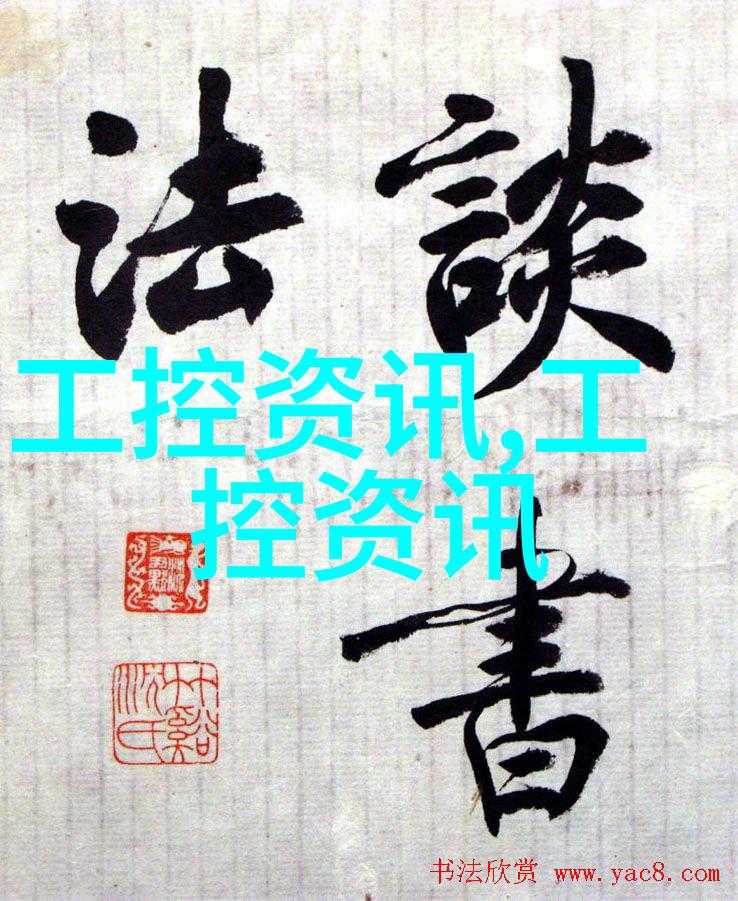 談書
法
工控资讯,工
控资讯
竹谿
沈氏
书法欣赏 www.yac8.com